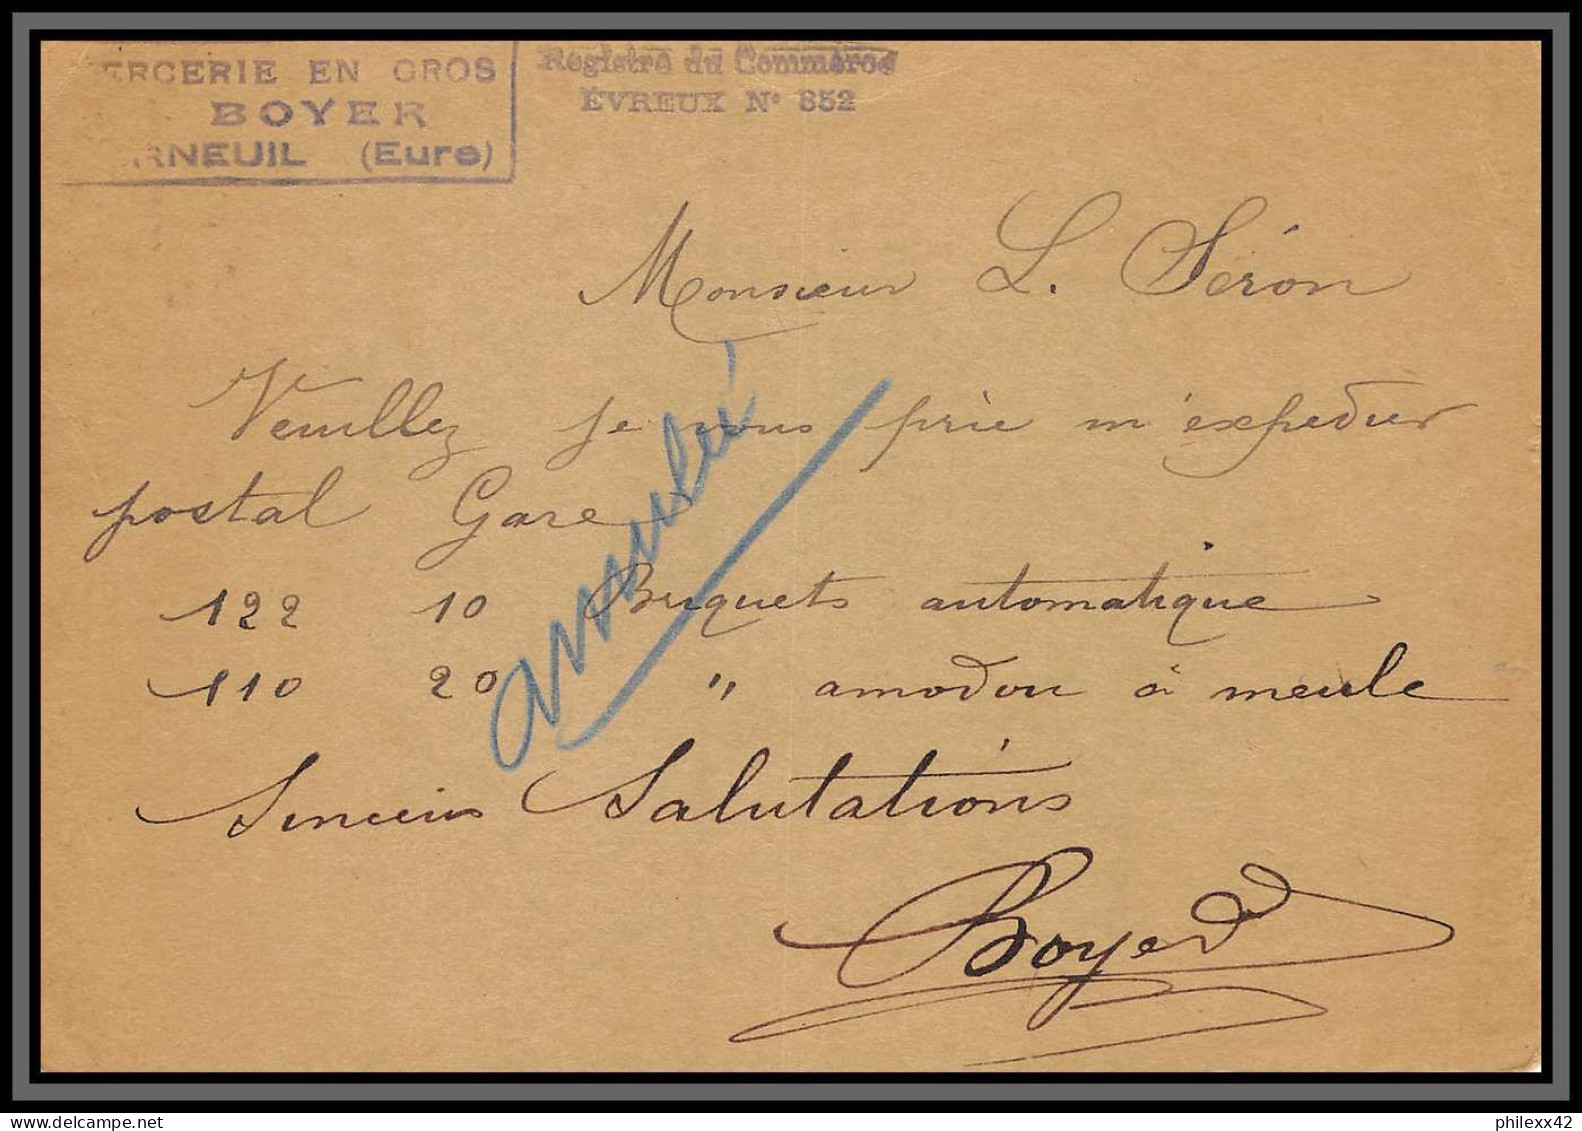 ERCERIE EN GROS
BOYER
ERNEUIL (Eure)
Registre du Commerce
EVREUX N° 852
Monsieur L. Séron
Veuillez je vous prie m'expedier
postal Gare
122 10 Briquets automatique
110 20 " amadou à meule
annulé
Sincères Salutations
Boyer
philexx42